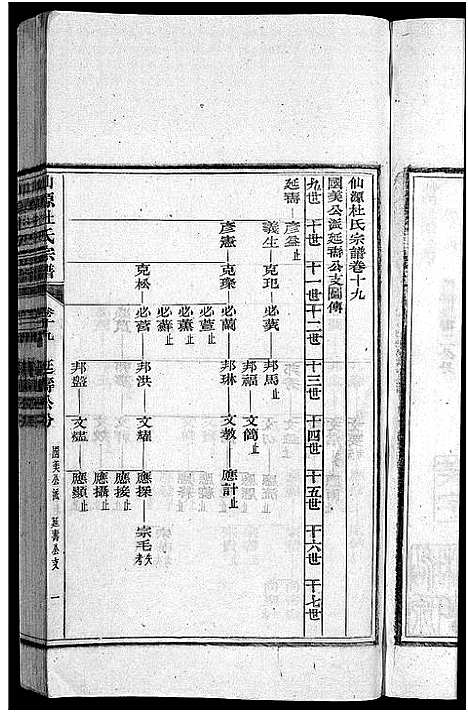 仙源杜氏宗譜卷十九
國美公派延壽公支圖傳
九世 十世 十一世 十二世 十三世 十四世 十五世 十六世 十七世
延壽 彥益止
義生 克玘 必蓂 邦馬止
必萱止 邦福 文簡止
彥憲 克瓈 必蘭 邦琳 文教 應計止
必薰止
必蓄止
克松 必蒈 邦洪 文燧 應探 宗毛夭考
應接止
應攝止
邦盤 文爐 應顯止
仙源杜氏宗譜 卷十九 延壽公分
國美公派 延壽公支 一